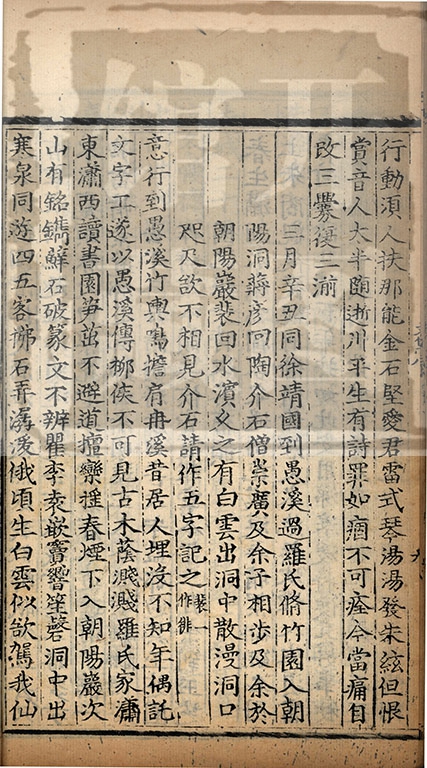 行動湏人扶那能金石堅愛君雷式琴湯湯發朱絃但恨
賞音人大半隨逝川平生有詩罪如痼不可痊今當痛自
改三釁復三湔
三月辛丑同徐靖國到愚溪過羅氏脩竹園入朝
陽洞蔣彦回陶介石僧崇廣及余子相步及余於
朝陽巖裴回水濱乆之有白雲出洞中散漫洞口
咫尺欲不相見介石請作五字記之裴一作徘
意行到愚溪竹輿鳴擔肩冉溪昔居人埋沒不知年偶託
文字工遂以愚溪傳柳侯不可見古木蔭濺濺羅氏家瀟
東瀟西讀書園笋茁不避道檀欒摇春煙下入朝陽巖次
山有銘鐫蘚石破篆文不辨瞿李袁嵌竇響笙磬洞中出
寒泉同遊四五客拂石弄潺湲俄頃生白雲似欲駕我仙